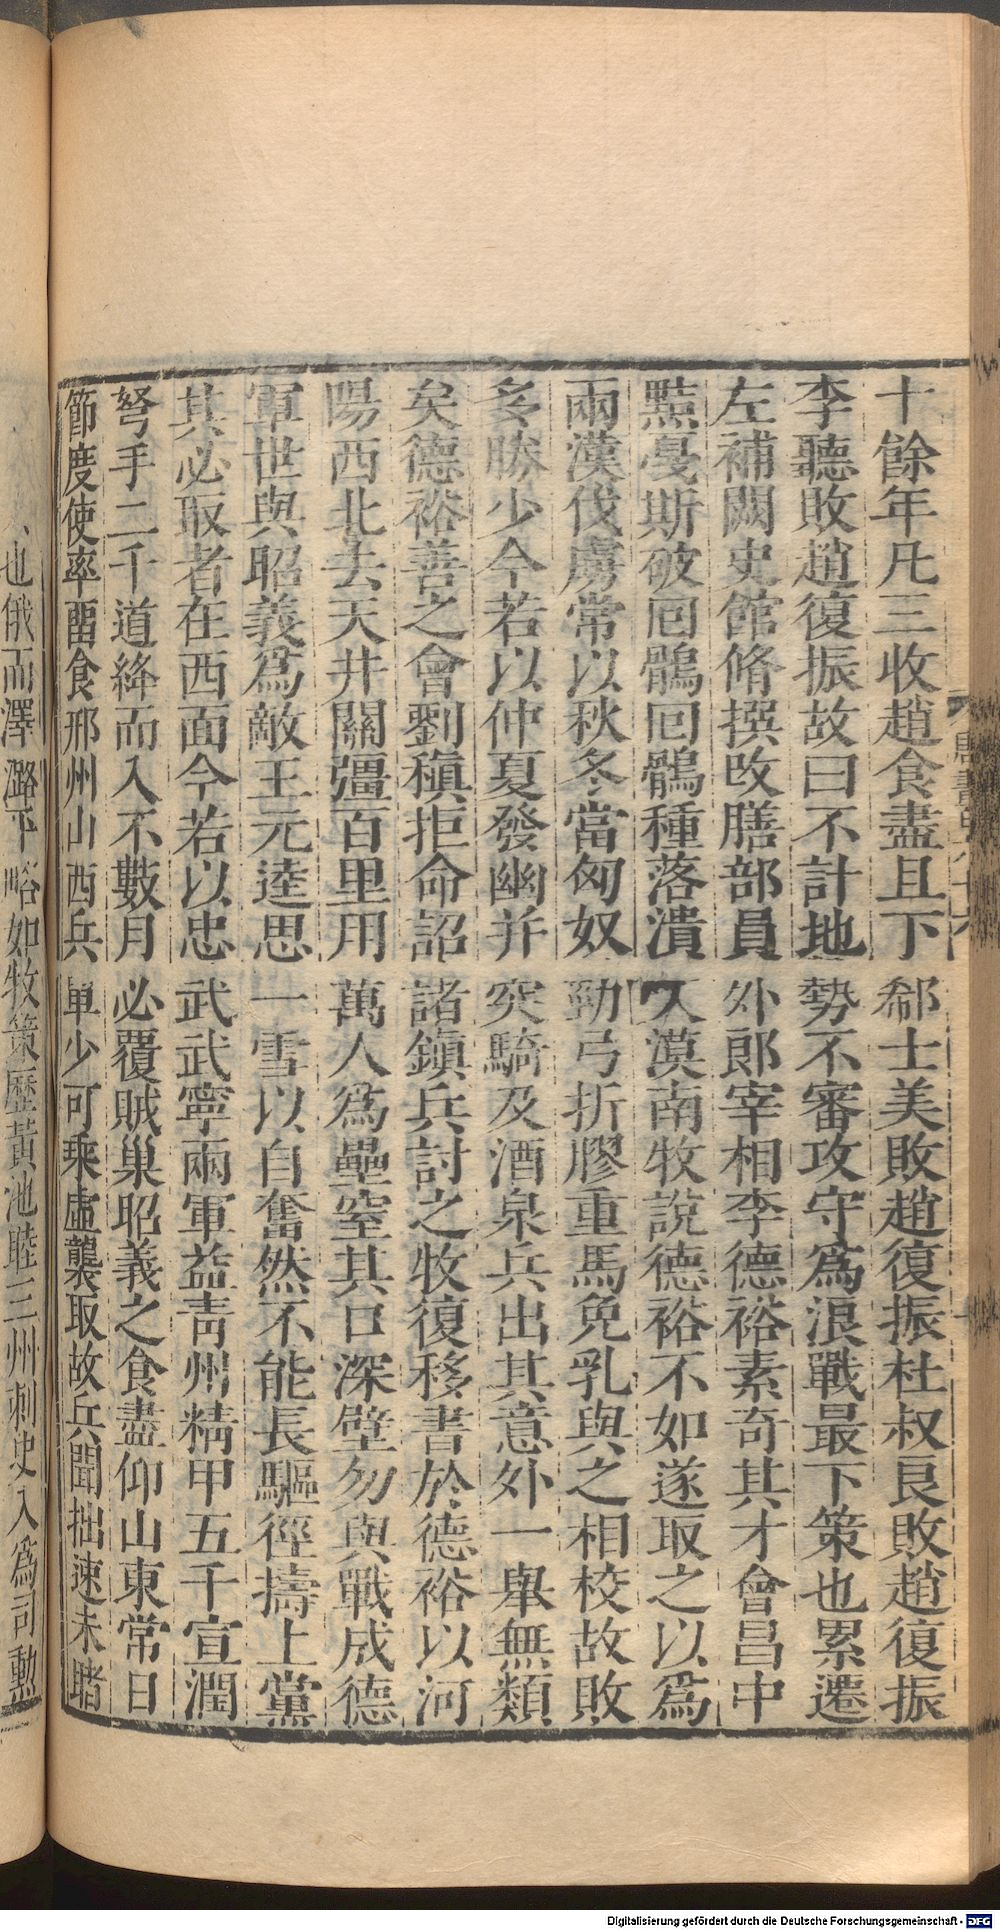 十餘年凡三收趙食盡且下郗士美敗趙復振杜叔良敗趙復振
李聽敗趙復振故曰不計地勢不審攻守爲浪戰最下策也累遷
左補闕史館脩撰改膳部員外郎宰相李德裕素奇其才會昌中
黠戛斯破回鶻回鶻種落潰入漠南牧說德裕不如遂取之以爲
兩漢伐虜常以秋冬當匈奴勁弓折膠重馬免乳與之相校故敗
多勝少今若以仲夏發幽并突騎及酒泉兵出其意外一舉無類
矣德裕善之會劉稹拒命詔諸鎭兵討之牧復移書於德裕以河
陽西北去天井關彊百里用萬人爲壘窒其口深壁勿與戰成德
軍世與昭義爲敵王元逵思一雪以自奮然不能長驅徑擣上黨
其必取者在西面今若以忠武武寧兩軍益靑州精甲五千宣潤
弩手二千道絳而入不數月必覆賊巢昭義之食盡仰山東常日
節度使率畱食邢州山西兵單少可乘虛襲取故兵聞拙速未睹
也俄而澤潞平略如牧策歷黃池睦三州刺史入爲司勳
Digitalisierung gefördert durch die Deutsche Forschungsgemeinschaft - DFG